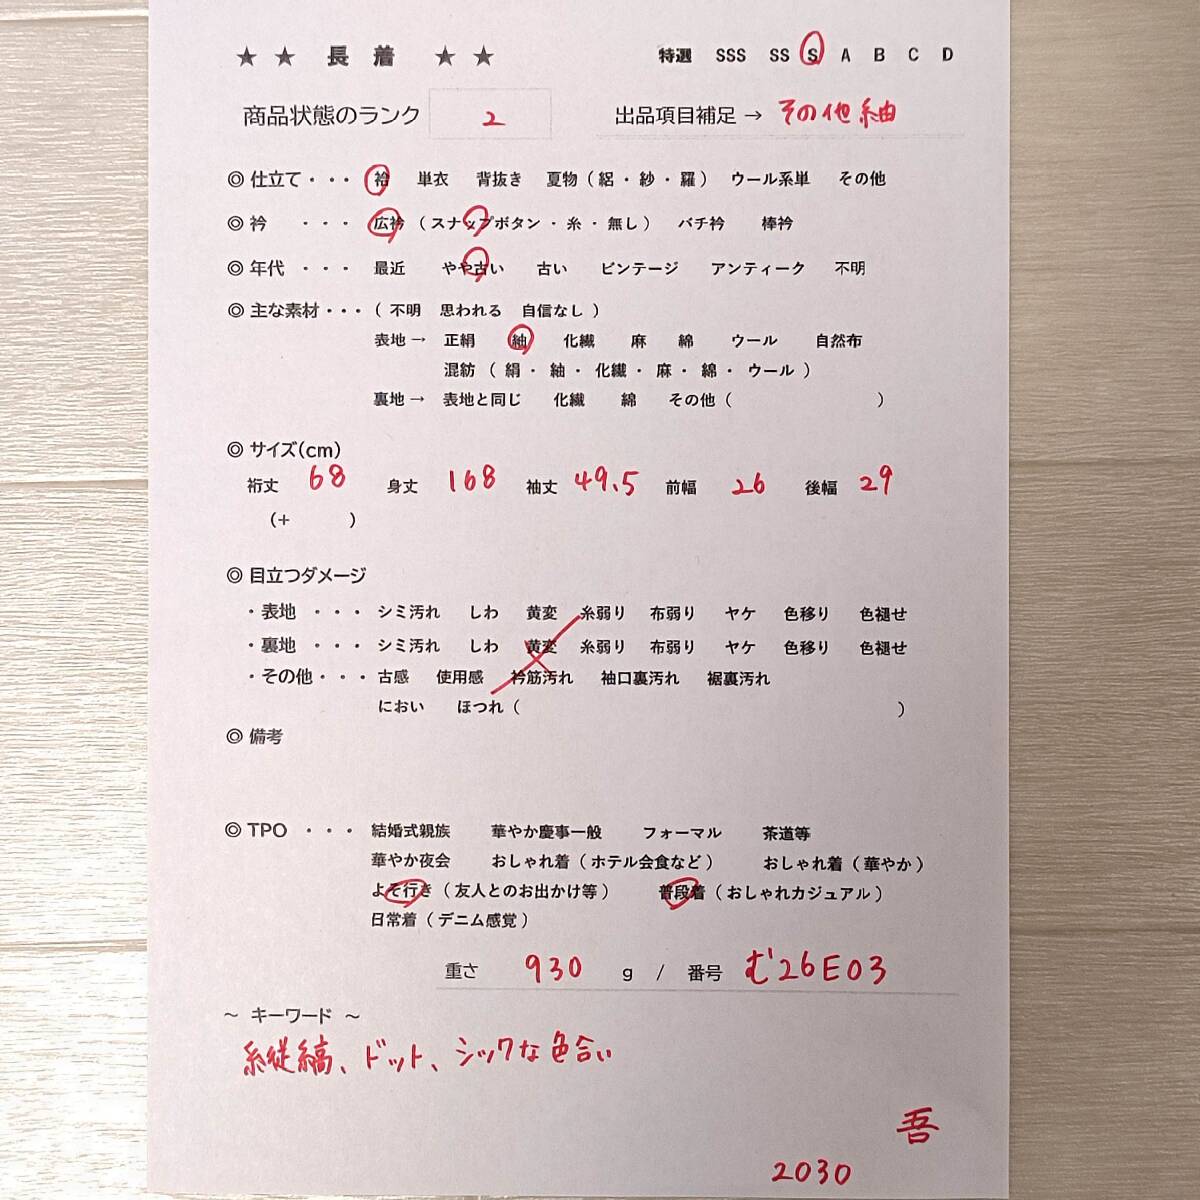 ★ ★ 長 着 ★ ★ 特選 SSS SS S A B C D
商品状態のランク 2 出品項目補足 → その他紬
◎ 仕立て・・・ 袷 単衣 背抜き 夏物（絽・紗・羅） ウール系単 その他
◎ 衿 ・・・ 広衿（スナップボタン・糸・無し） バチ衿 棒衿
◎ 年代 ・・・ 最近 やや古い 古い ビンテージ アンティーク 不明
◎ 主な素材・・・（ 不明 思われる 自信なし ）
表地→ 正絹 紬 化繊 麻 綿 ウール 自然布
混紡（ 絹・ 紬・ 化繊・ 麻・ 綿・ ウール ）
裏地→ 表地と同じ 化繊 綿 その他（ ）
◎ サイズ(cm)
裄丈 68 身丈 168 袖丈 49.5 前幅 26 後幅 29
（+ ）
◎ 目立つダメージ
・表地 ・・・ シミ汚れ しわ 黄変 糸弱り 布弱り ヤケ 色移り 色褪せ
・裏地 ・・・ シミ汚れ しわ 黄変 糸弱り 布弱り ヤケ 色移り 色褪せ
・その他・・・ 古感 使用感 衿筋汚れ 袖口裏汚れ 裾裏汚れ
におい ほつれ（ ）
◎ 備考
◎ TPO ・・・ 結婚式親族 華やか慶事一般 フォーマル 茶道等
華やか夜会 おしゃれ着（ホテル会食など） おしゃれ着（華やか）
よそ行き（友人とのお出かけ等） 普段着（おしゃれカジュアル）
日常着（デニム感覚）
重さ 930 g / 番号 む26E03
～ キーワード ～
糸縦縞、ドット、シックな色合い
吾
2030